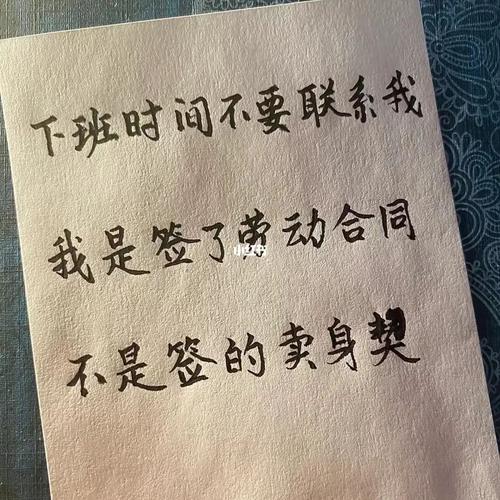 下班时间不要联系我
我是签了劳动合同
小红书
不是签的卖身契